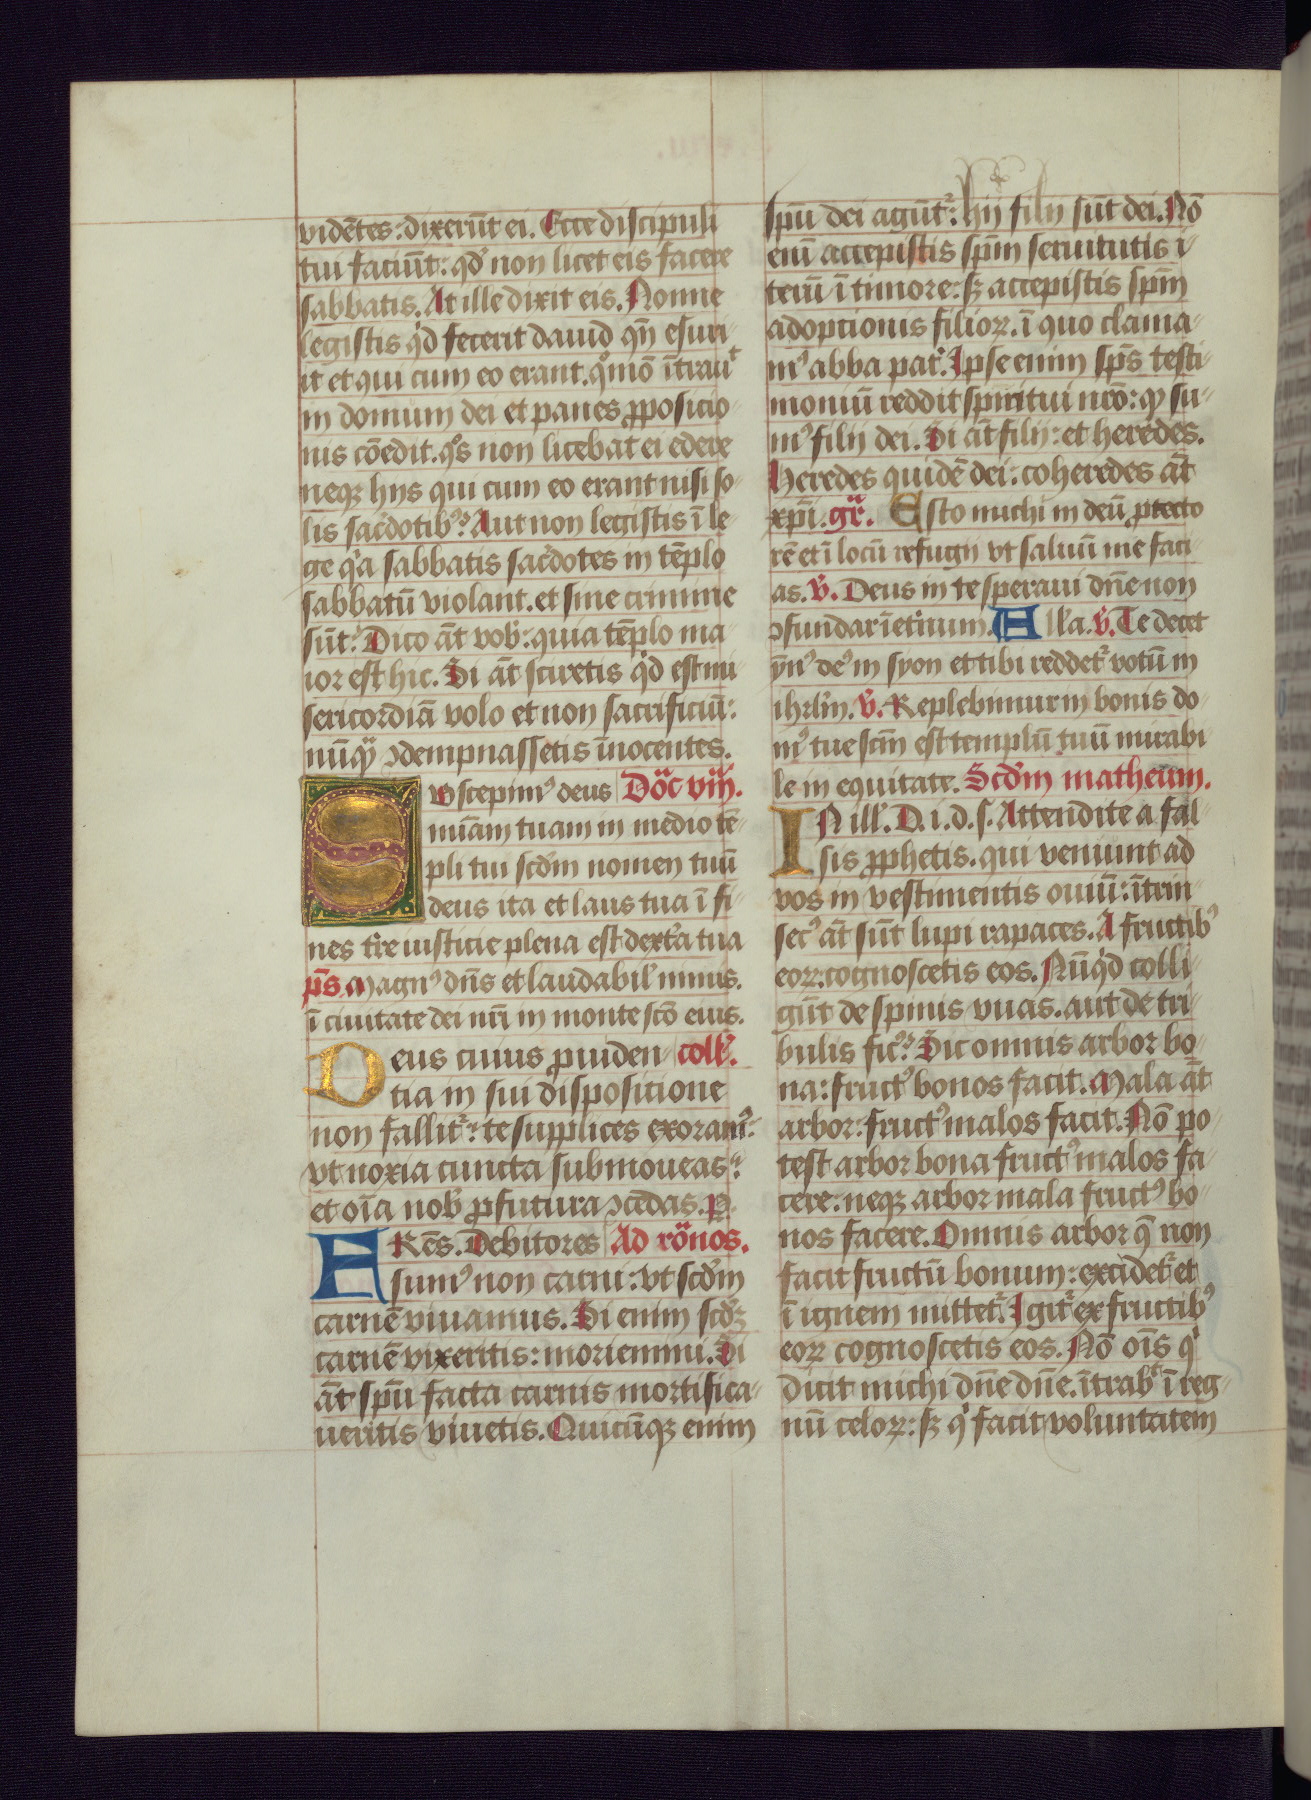 vidētes: dixerūt ei. Ecce discipuli
tui faciūt: qd' non licet eis facere
sabbatis. At ille dixit eis. Nonne
legistis qͥd fecerit dauid qn̄ esuri-
it et qui cum eo erant. qͦmō ītrauͭ
in domum dei et panes ꝓposicio-
nis cōedit. qͦs non licebat ei edere
neqꝫ hijs qui cum eo erant nisi so-
lis sac̓dotibꝰ? Aut non legistis ī le-
ge qͥa sabbatis sac̓dotes in tēplo
sabbatū violant. et sine crimine
sūt? Dico āt vob': quia tēplo ma-
ior est hic. Si āt sciretis qͥd est mi-
sericordiā volo et non sacrificiū:
nūqͣꝫ ꝯdempnassetis īnocentes.
Suscepimꝰ deus Dōc viij.
miāM tuam in medio tē-
pli tui scd̄m nomen tuū
deus ita et laus tua ī fi-
nes tr̄e iusticie plena est dext̓a tua
p̄s. Magnꝰ dn̄s et laudabil' nimis.
ī ciuitate dei nr̄i in monte scō eius.
Deus cuius ꝓuiden- coll'.
tia in sui disposicione
non fallitᷣ: te supplices exoramꝰ:
vt noxia cuncta submoueas:
et oīa nob' ꝓfutura ꝯcedas. P.
FRēs. Debitores Ad rōnos.
sumꝰ non carni: vt scd̄m
carnē viuamus. Si enim scd̄ꝫ
carnē vixeritis: moriemini. Si
āt spū facta carnis mortifica-
ueritis viuetis. Quicūqꝫ enim
spū dei agūtᷣ: hij filij sūt dei. Nō
eniǖ accepistis spm̄ seruitutis i-
terū ī timore: sꝫ accepistis spm̄
adoptionis filioꝝ. ī quo clama-
mꝰ abba pat̓. Ipse enim sp̄s testi-
moniū reddit spiritui nrō: qꝫ su-
mꝰ filij dei. Si āt filij: et heredes.
Heredes quidē dei: coheredes āt
xp̄i. gr̄. Esto michi in deū ꝓtecto-
rē et ī locū refugij vt saluū me faci-
as. v̄. Deus in te speraui dn̄e non
ꝯfundar īet̓num. All'a. v̄. Te decet
ẏnꝰ deꝰ in syon et tibi reddetᷣ votū in
ihrl'm. v̄. Replebimur in bonis do-
mꝰ tue scm̄ est templū tuū mirabi-
le in equitate. Scd̄m matheum.
IN ill'. D. i. d. s. Attendite a fal-
sis ꝓphetis. qui veniunt ad
vos in vestimentis ouiū: ītrin-
secꝰ āt sūt lupi rapaces. A fructibꝰ
eoꝝ. cognoscetis eos. Nūqͥd colli-
gūt de spinis vuas. aut de tri-
bulis ficꝰ? Sic omnis arbor bo-
na: fructꝰ bonos facit. Mala āt
arbor: fructꝰ malos facit. Nō po-
test arbor bona fructꝰ malos fa-
cere: neqꝫ arbor mala fructꝰ bo-
nos facere. Omnis arbor q̄ non
facit fructū bonum: excidetᷣ et
ī ignem mittetᷣ. Igitᷣ ex fructibꝰ
eoꝝ cognoscetis eos. Nō oīs qͥ
dicit michi dn̄e dn̄e. ītrabͭ ī reg-
nū celoꝝ: sꝫ qͥ facit voluntatem